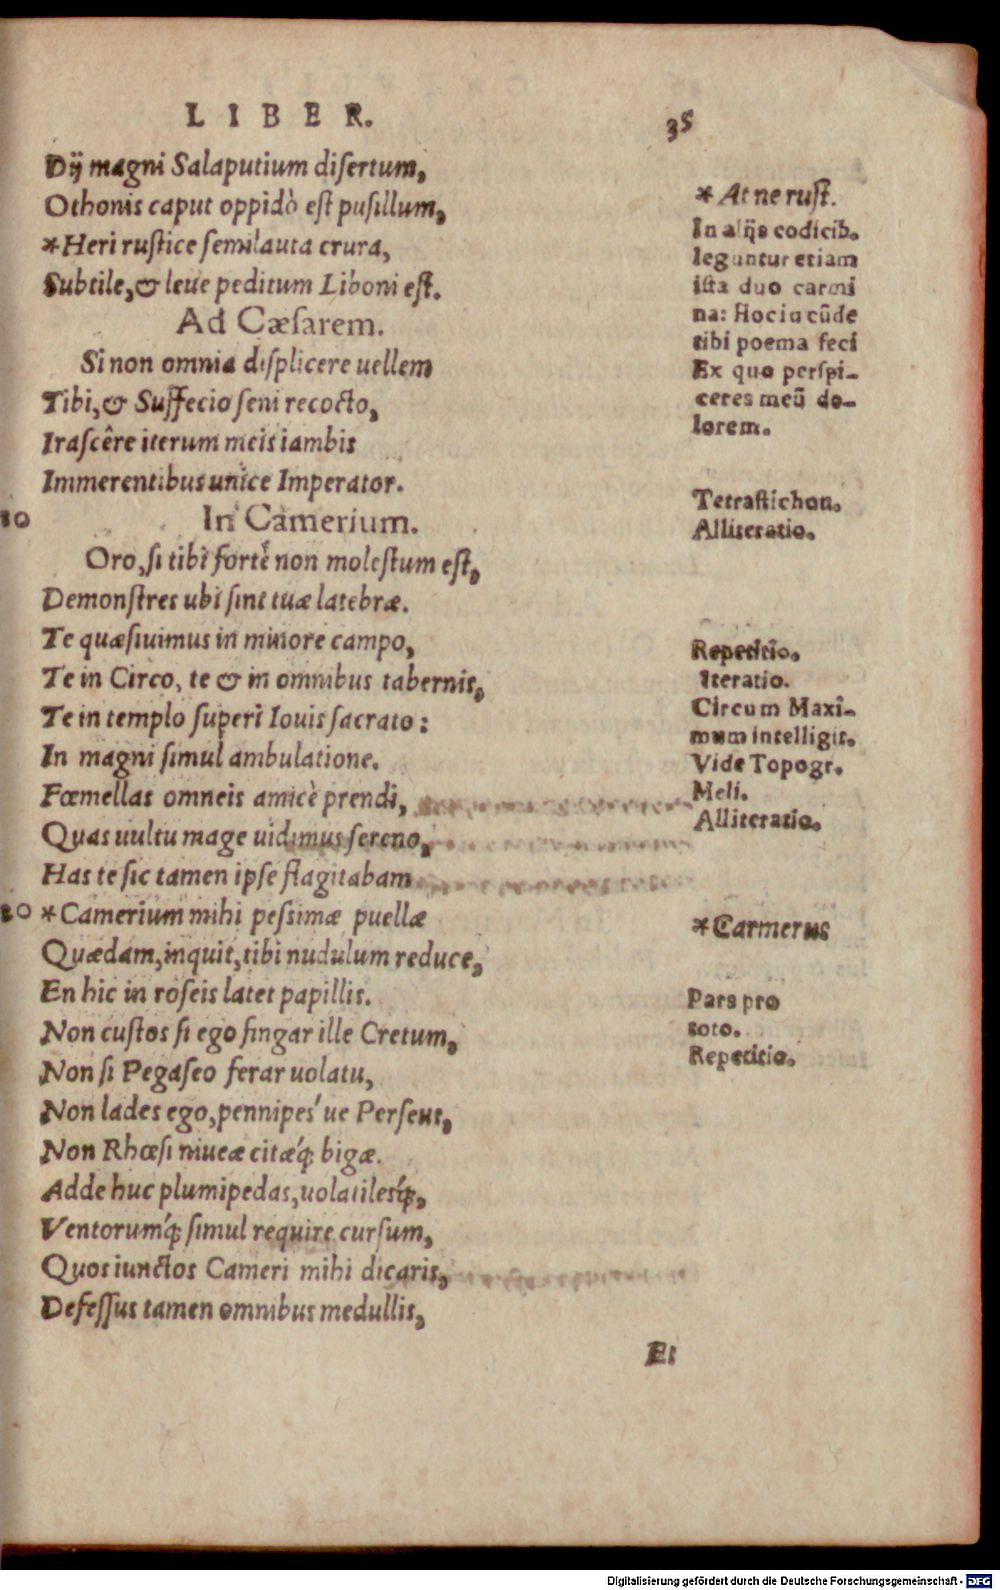 LIBER. 35
Dij magni Salaputium disertum,
Othonis caput oppidò est pusillum,
*Heri rustice semilauta crura,
Subtile, & leue peditum Liboni est.
Ad Cæsarem.
Si non omnia displicere uellem
Tibi, & Suffecio seni recocto,
Irascêre iterum meis iambis
Immerentibus unice Imperator.
10 In Camerium.
Oro, si tibi fortè non molestum est,
Demonstres ubi sint tuæ latebræ.
Te quæsiuimus in minore campo,
Te in Circo, te & in omnibus tabernis,
Te in templo superi Iouis sacrato:
In magni simul ambulatione.
Fœmellas omneis amicè prendi,
Quas uultu mage uidimus sereno,
Has te sic tamen ipse flagitabam
20 *Camerium mihi pessimæ puellæ
Quædam, inquit, tibi nudulum reduce,
En hic in roseis latet papillis.
Non custos si ego fingar ille Cretum,
Non si Pegaseo ferar uolatu,
Non lades ego, pennipes've Perseus,
Non Rhœsi niueæ citæq́; bigæ.
Adde huc plumipedas, uolatilesq́;,
Ventorumq́; simul require cursum,
Quos iunctos Cameri mihi dicaris,
Defessus tamen omnibus medullis,
Et
* At ne rust.
In alijs codicib.
leguntur etiam
ista duo carmi
na: Hociucūde
tibi poema feci
Ex quo perspi-
ceres meū do-
lorem.
Tetrastichon.
Alliteratio.
Repetitio.
Iteratio.
Circum Maxi-
mum intelligit.
Vide Topogr.
Meli.
Alliteratio.
*Carmerus
Pars pro
toto.
Repetitio.
Digitalisierung gefördert durch die Deutsche Forschungsgemeinschaft - DFG